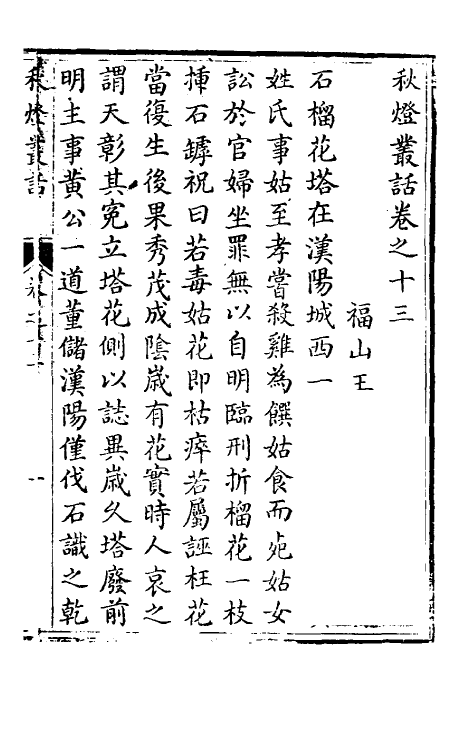 秋燈叢話卷之十三
福山王
石榴花塔在漢陽城西一
姓氏事姑至孝嘗殺雞為饌姑食而死姑女
訟於官婦坐罪無以自明臨刑折榴花一枝
挿石罅祝曰若毒姑花即枯瘁若屬誣枉花
當復生後果秀茂成陰嵗有花實時人哀之
謂天彰其寃立塔花側以誌異嵗久塔廢前
明主事黄公一道董儲漢陽僅伐石識之乾
秋燈叢話
卷之十三
一